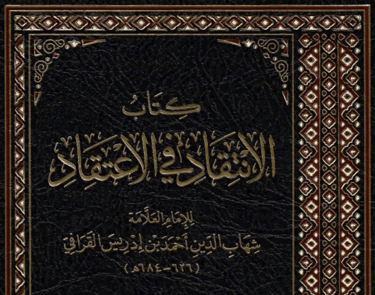 كِتَابُ
الِانْتِقَادِ فِي الِاعْتِقَادِ
لِلْإِمَامِ الْعَلَّامَةِ
شِهَابِ الدِّينِ أَحْمَدَ بْنِ إِدْرِيسَ الْقَرَافِيِّ
(٦٢٦-٦٨٤هـ)